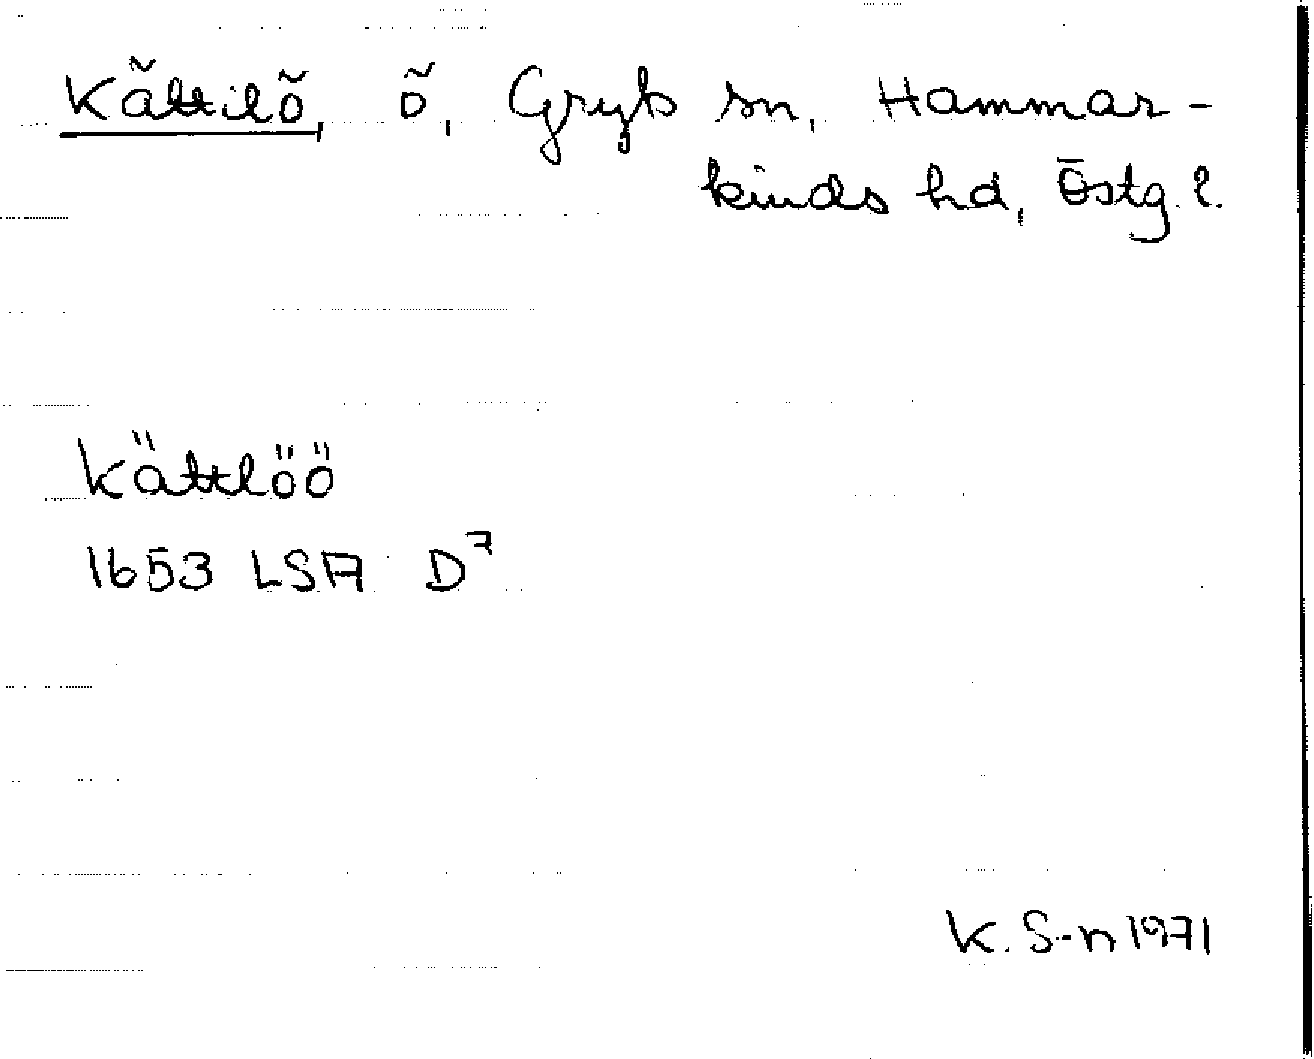 Kättilö, ö, Gryts sn, Hammar-
kinds hd, Östg. l.
Kättlöö
1653 LSA D7
K. S-n 1971